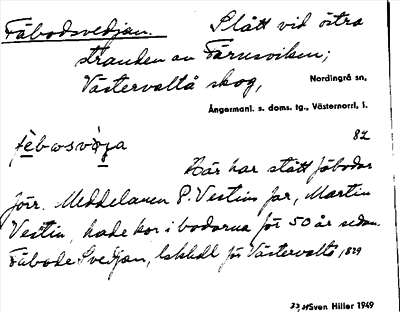 Fäbodsvedjan. Slått vid östra
stranden av Färnsviken;
Västervaltå skog,
Nordingrå sn,
Ångermanl. s. doms. tg., Västernorrl. l.
82
Här har stått fäbodar
förr. Meddelaren P. Vestins far, Martin
Vestin, hade kor i bodarna för 50 år sedan.
Fäbode Svedjan, lskhdl för Västervaltå, 1829
Sven Hiller 1949